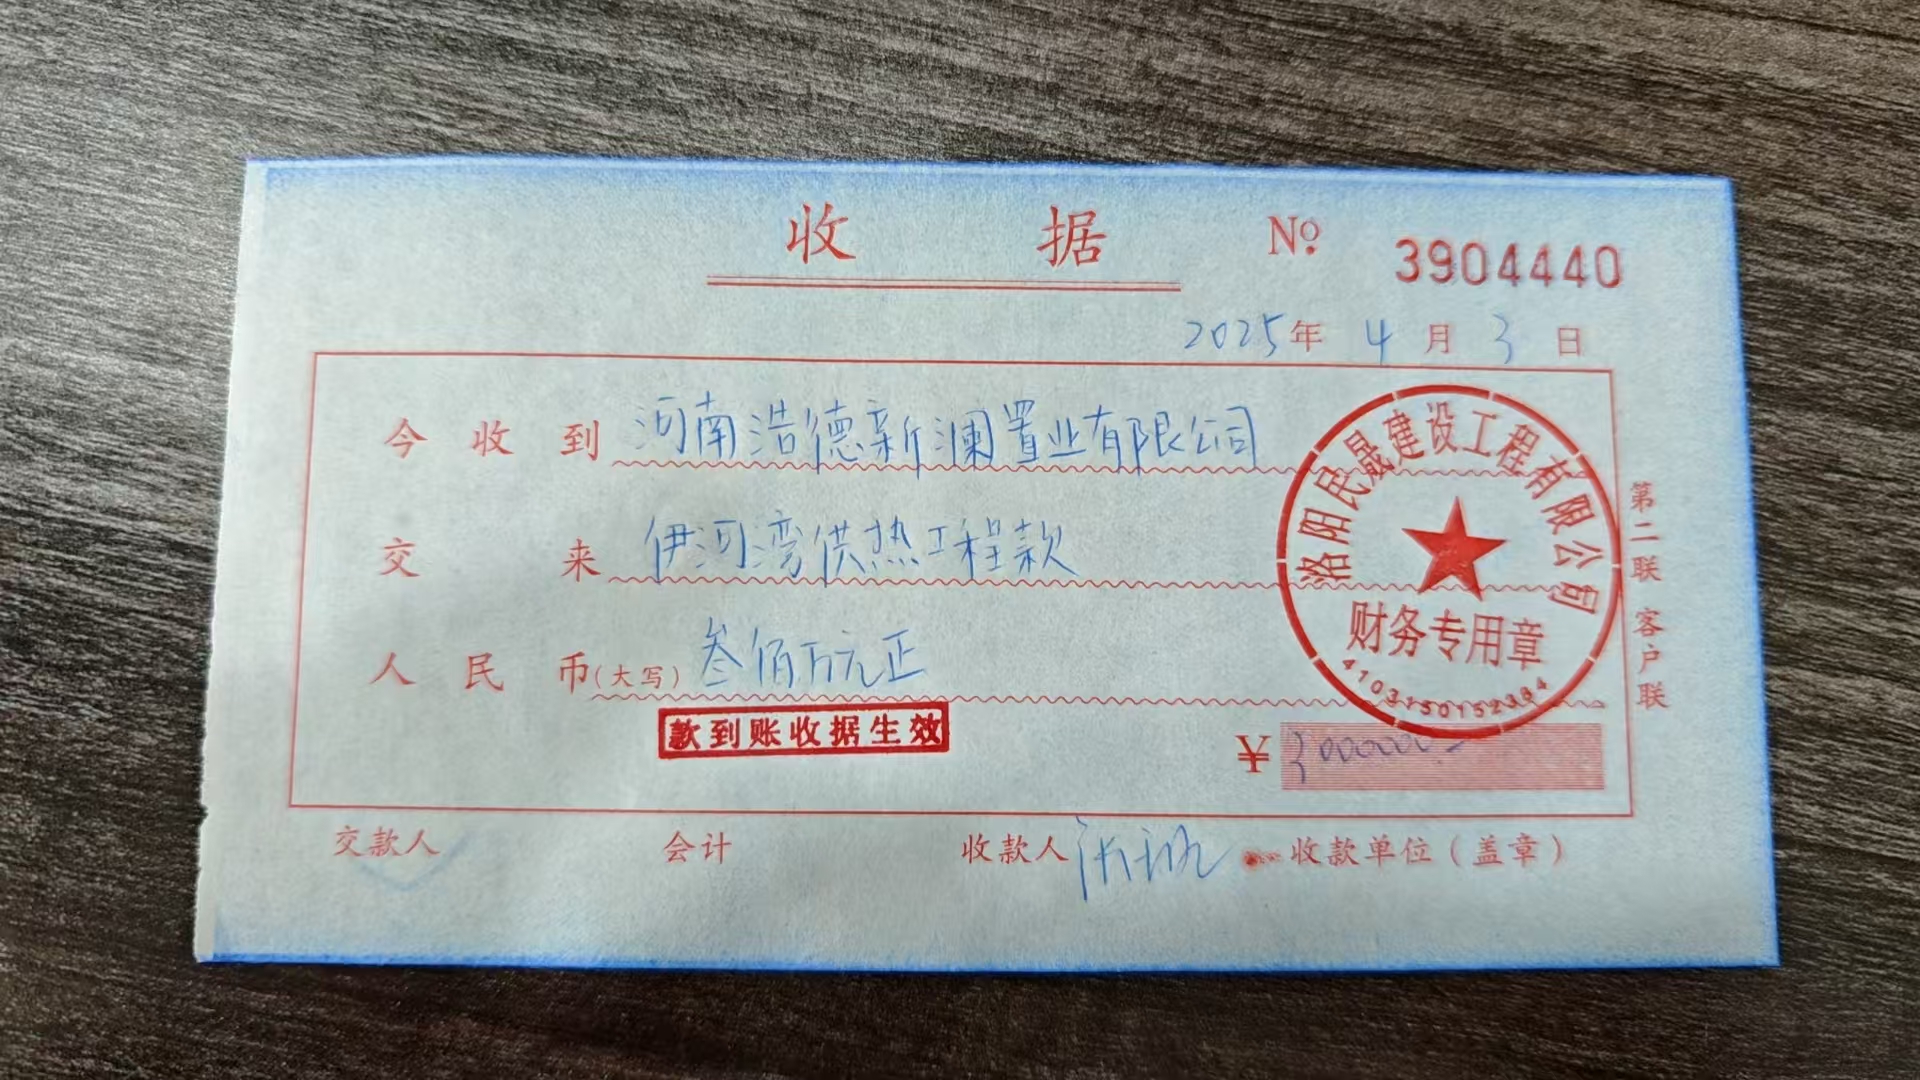 收 据 No. 3904440
2025年 4月 3日
今收到 河南浩德新澜置业有限公司
交来 伊河湾供热工程款
人民币(大写) 叁佰万元正
款到账收据生效
¥ 3000000-
洛阳民晟建设工程有限公司
财务专用章
4103150152384
交款人 会计 收款人 收款单位（盖章）
第二联 客户联